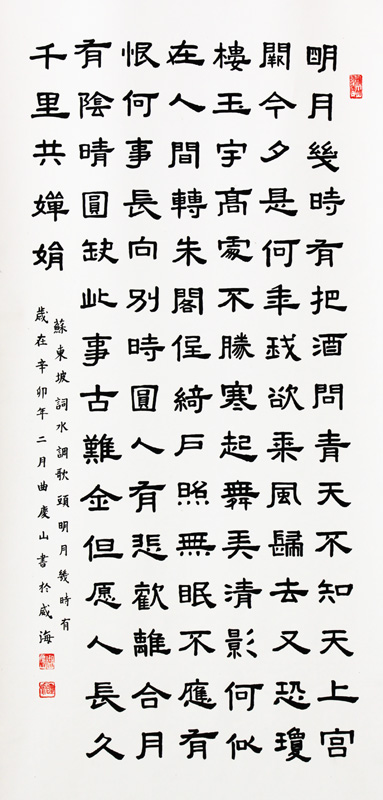 明月幾時有把酒問青天不知天上宫
闕今夕是何年我欲乘風歸去又恐瓊
樓玉宇高處不勝寒起舞弄清影何似
在人間轉朱閣低綺戶照無眠不應有
恨何事長向別時圓人有悲歡離合月
有陰晴圓缺此事古難全但愿人長久
千里共嬋娟
蘇東坡詞水調歌頭明月幾時有
歲在辛卯年二月曲慶山書於威海